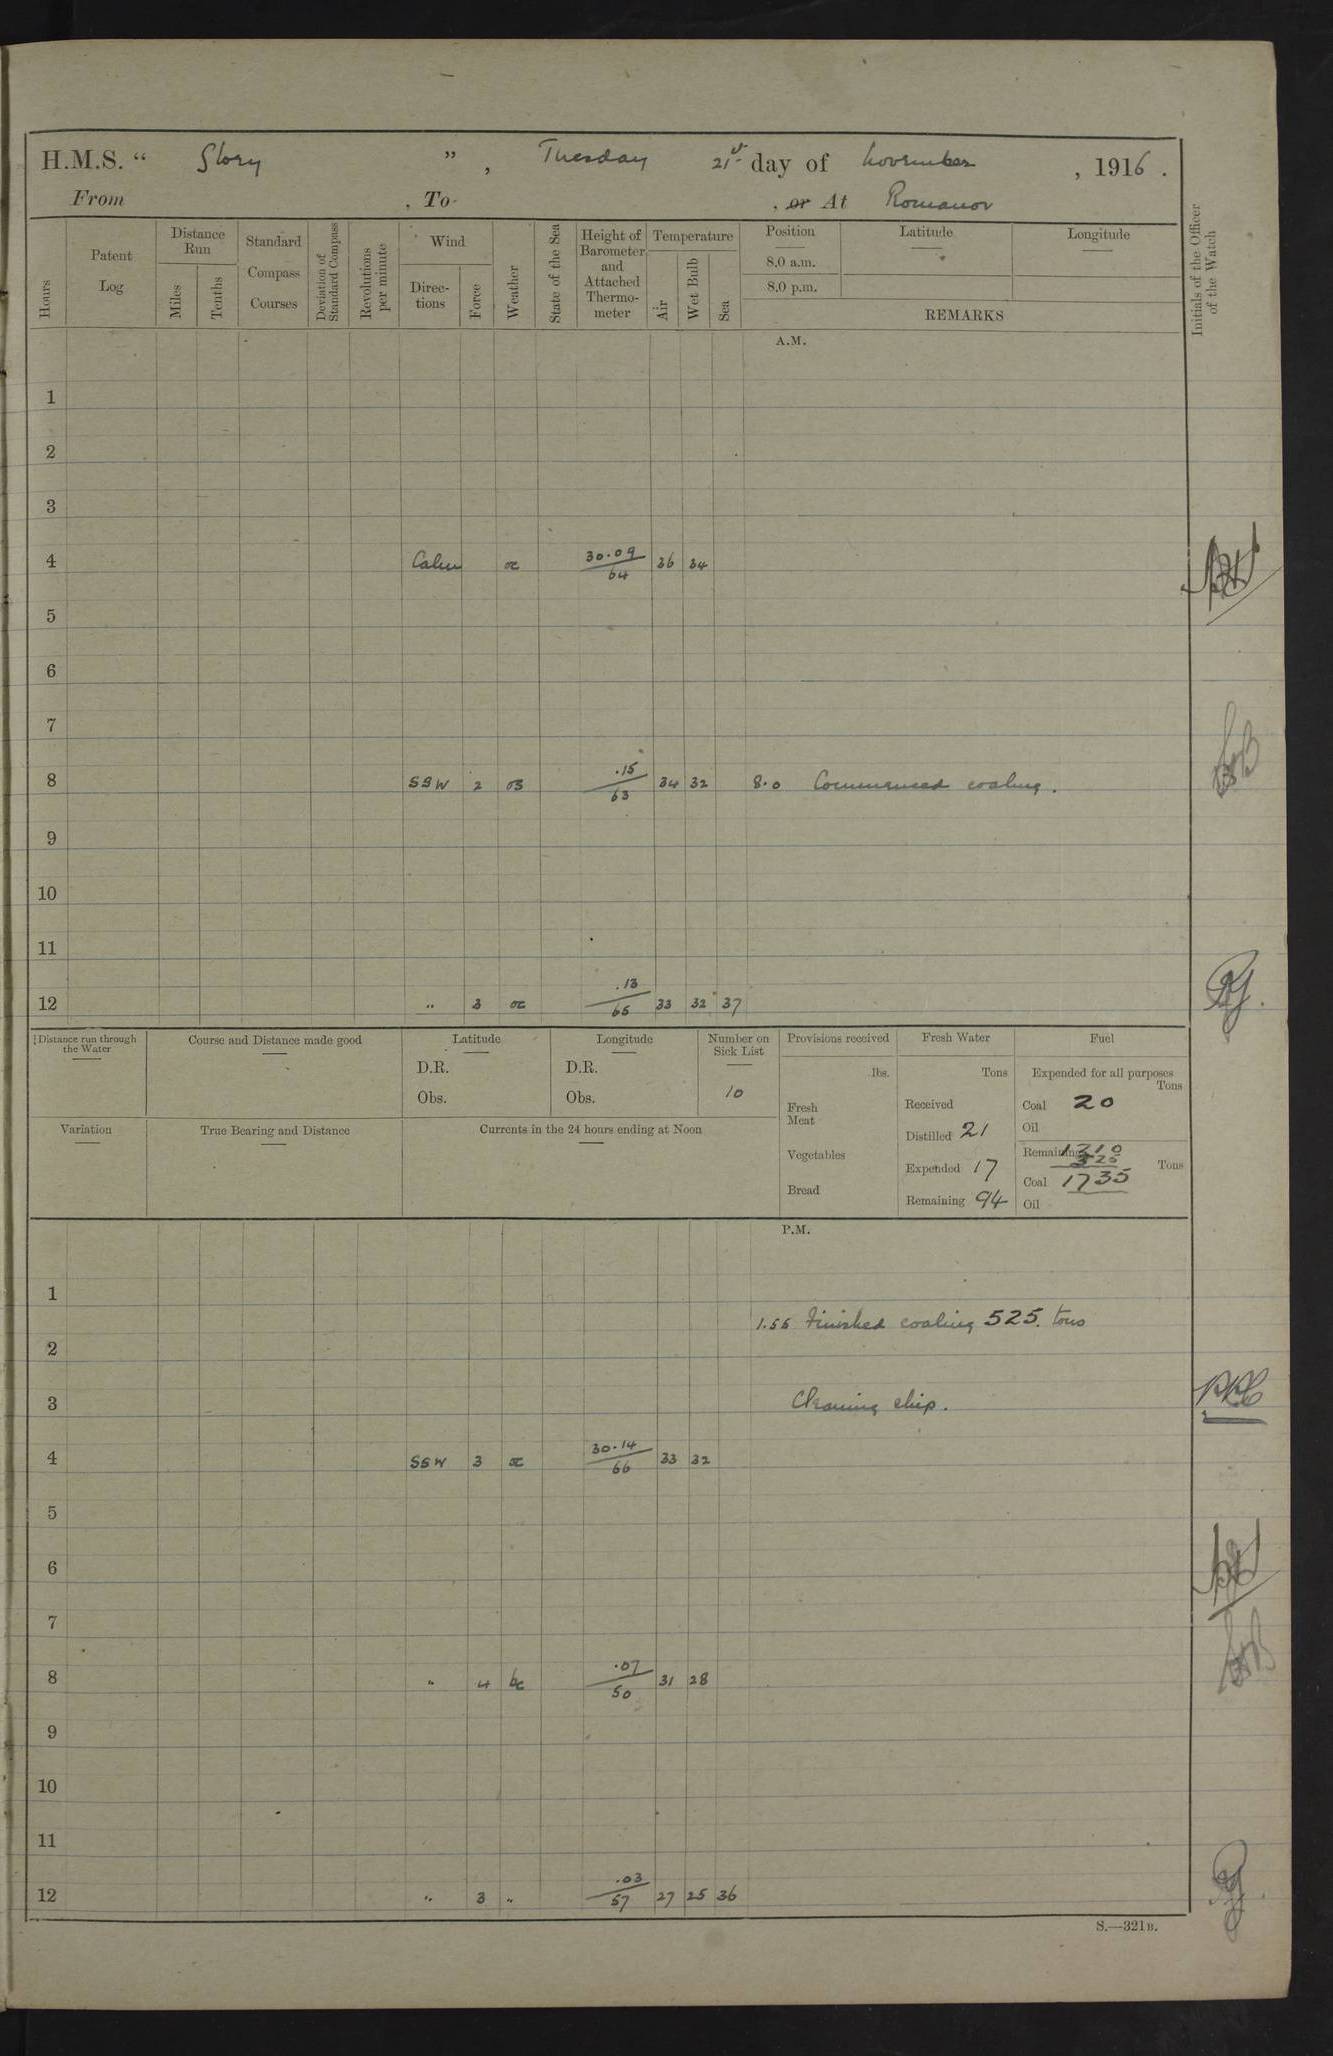 H.M.S. “ Glory ” , Tuesday 21st day of November , 1916 .
From , To , or At Romanov
Hours
Patent Log
Distance Run
Miles
Tenths
Standard Compass Courses
Deviation of Standard Compass
Revolutions per minute
Wind
Direc- tions
Force
Weather
State of the Sea
Height of Barometer and Attached Thermo- meter
Temperature
Air
Wet Bulb
Sea
Position
8.0 a.m.
8.0 p.m.
Latitude
Longitude
REMARKS
Initials of the Officer of the Watch
A.M.
1
2
3
4 Calm oc 30.09/64 36 34
5
6
7
8 SSW 2 oB .15/63 34 32 8.0 Commenced coaling.
9
10
11
12 " 3 oc .13/65 33 32 37
Distance run through the Water
Course and Distance made good
Latitude
D.R.
Obs.
Longitude
D.R.
Obs.
Number on Sick List
10
Variation
True Bearing and Distance
Currents in the 24 hours ending at Noon
Provisions received
lbs.
Fresh Meat
Vegetables
Bread
Fresh Water
Tons
Received
Distilled 21
Expended 17
Remaining 94
Fuel
Expended for all purposes
Tons
Coal 20
Oil
Remaining 1210
525
Tons
Coal 1735
Oil
P.M.
1
1.55 Finished coaling 525. tons
2
3 Cleaning ship.
4 SSW 3 oc 30.14/66 33 32
5
6
7
8 " 4 bc .07/50 31 28
9
10
11
12 " 3 " .03/57 27 25 36
S.—321B.